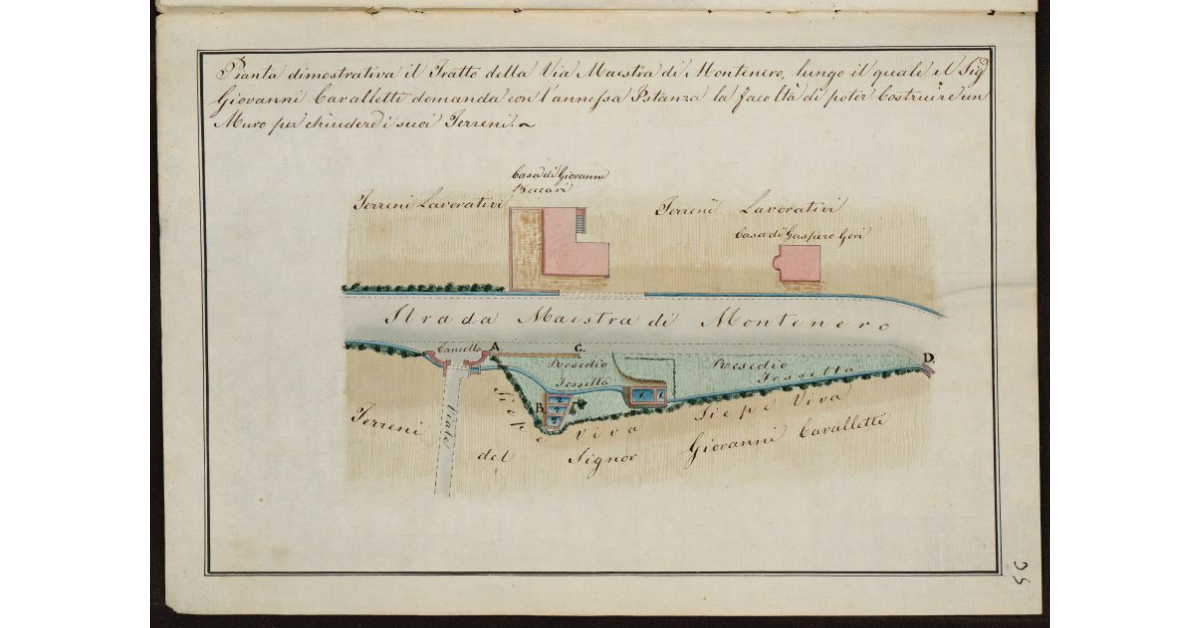 Pianta dimostrativa il Tratto della Via Maestra di Montenero, lungo il quale il Sig
Giovanni Cavalletti domanda con l'annessa Istanza la facoltà di poter Costruire un
Muro per chiudere i suoi Terreni.~
Casa di Giovanni
Beccari
Terreni Lavorativi
Terreni Lavorativi
Casa di Gaspero Geri
Strada Maestra di Montenero
Cancello
A.
C.
D.
Resedio
Fossetta
Resedio
Fossetta
B.
Viale
Siepe Viva
Siepe Viva
Terreni
del Signor Giovanni Cavalletti
35